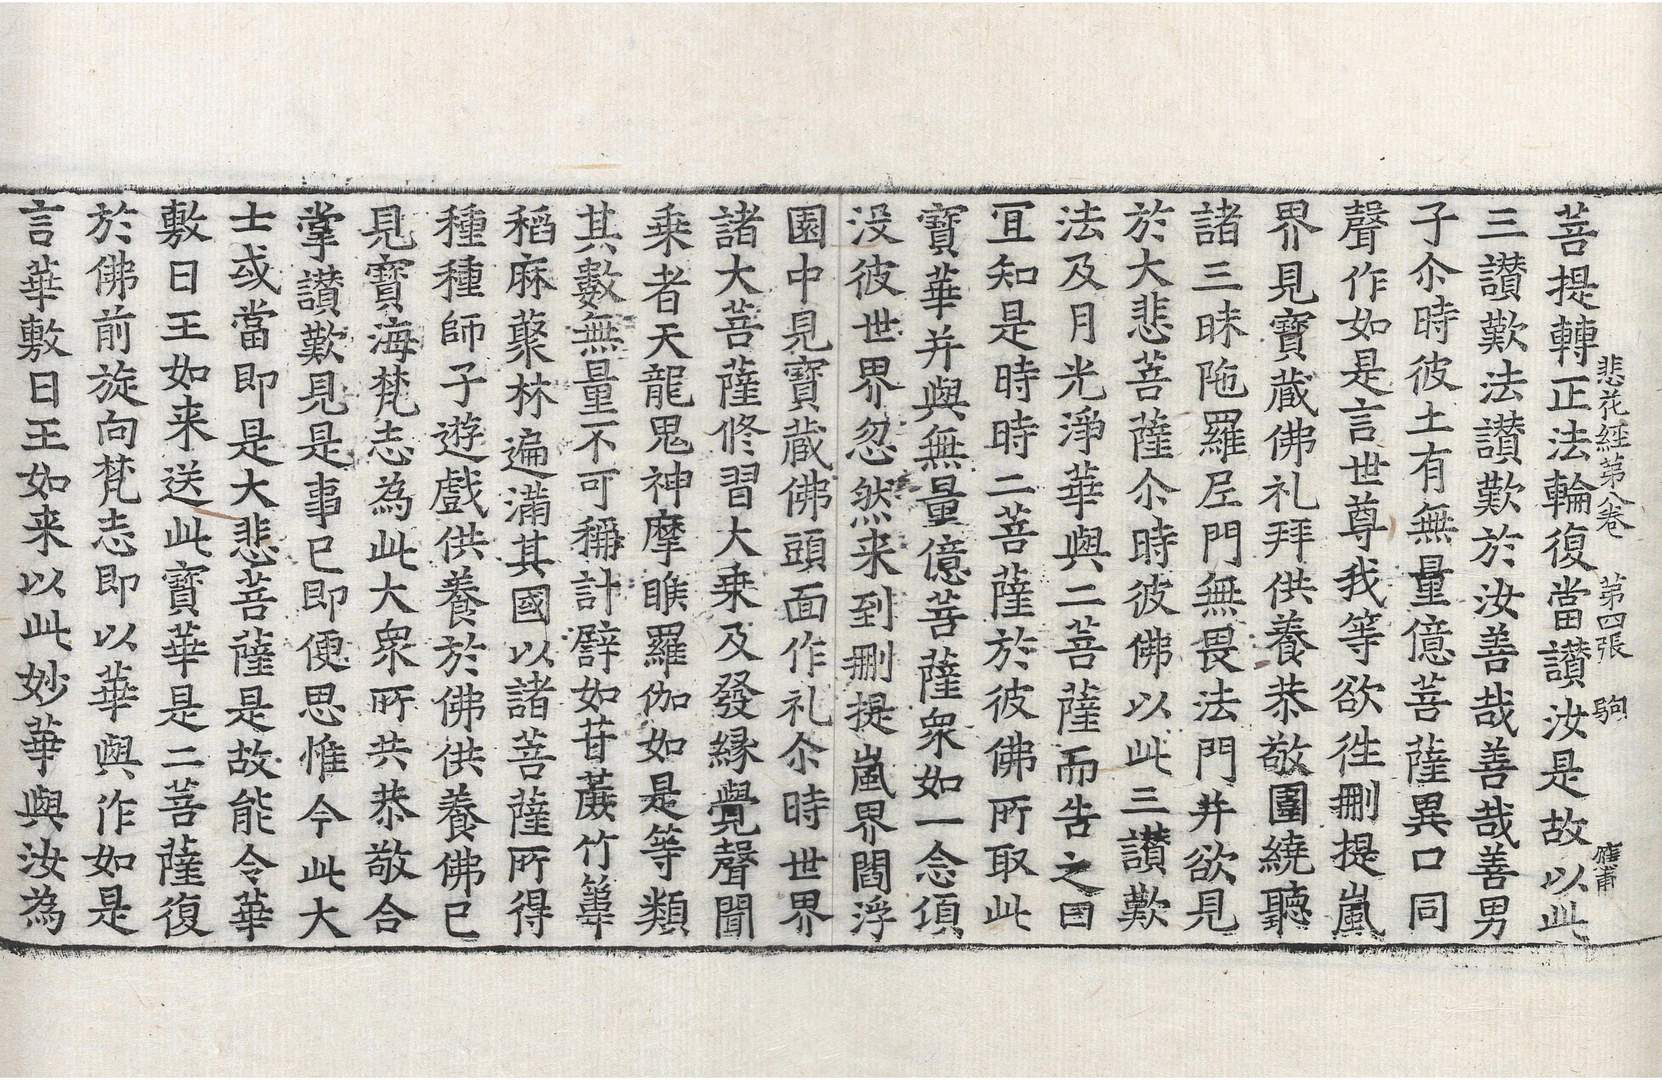 悲花經第八卷　第四張　駒　應甫
菩提轉正法輪復當讃汝是故以此
三讃歎法讃歎於汝善哉善哉善男
子尒時彼土有無量億菩薩異口同
聲作如是言世尊我等欲徃刪提嵐
界見寶蔵佛礼拜供養恭敬圍繞聽
諸三昧陁羅尼門無畏法門并欲見
於大悲菩薩尒時彼佛以此三讃歎
法及月光淨華與二菩薩而告之曰
冝知是時時二菩薩於彼佛所取此
寶華并與無量億菩薩衆如一念頃
没彼世界忽然来到刪提嵐界閻浮
園中見寶蔵佛頭面作礼尒時世界
諸大菩薩修習大乗及發縁覺聲聞
乗者天龍鬼神摩睺羅伽如是等類
其數無量不可稱計譬如苷蔗竹䇷
稻麻藂林遍滿其國以諸菩薩所得
種種師子遊戲供養於佛供養佛已
見寶海梵志為此大衆所共恭敬合
掌讃歎見是事已即便思惟今此大
士或當即是大悲菩薩是故能令華
敷日王如来送此寶華是二菩薩復
於佛前旋向梵志即以華與作如是
言華敷日王如来以此妙華與汝為